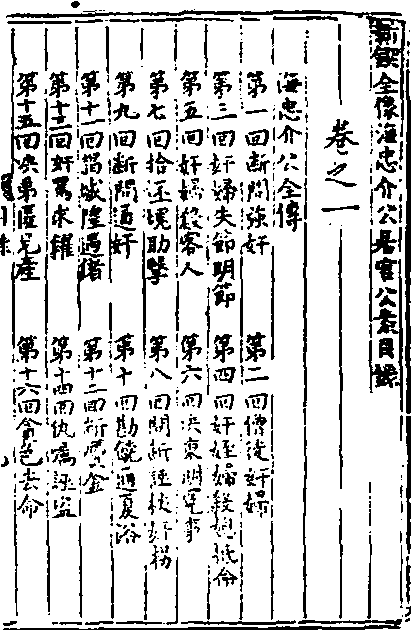 新鋟全像海忠介公居官公案目錄
卷之一
海忠介公全傳
第一回斷問強奸
第二回僧徒奸婦
第三回奸婦失節明節
第四回奸姪婦殺媳抵命
第五回奸婦殺客人
第六回決東明冤事
第七回拾還塊助擊
第八回開斷誣扶奸拐
第九回斷問通奸
第十回勘饒通夏浴
第十一回謁城隍遇猪
第十二回斷 金
第十三回奸罵求鑵
第十四回仇囑誣盜
第十五回決弟匿兄產
第十六回貪色喪命